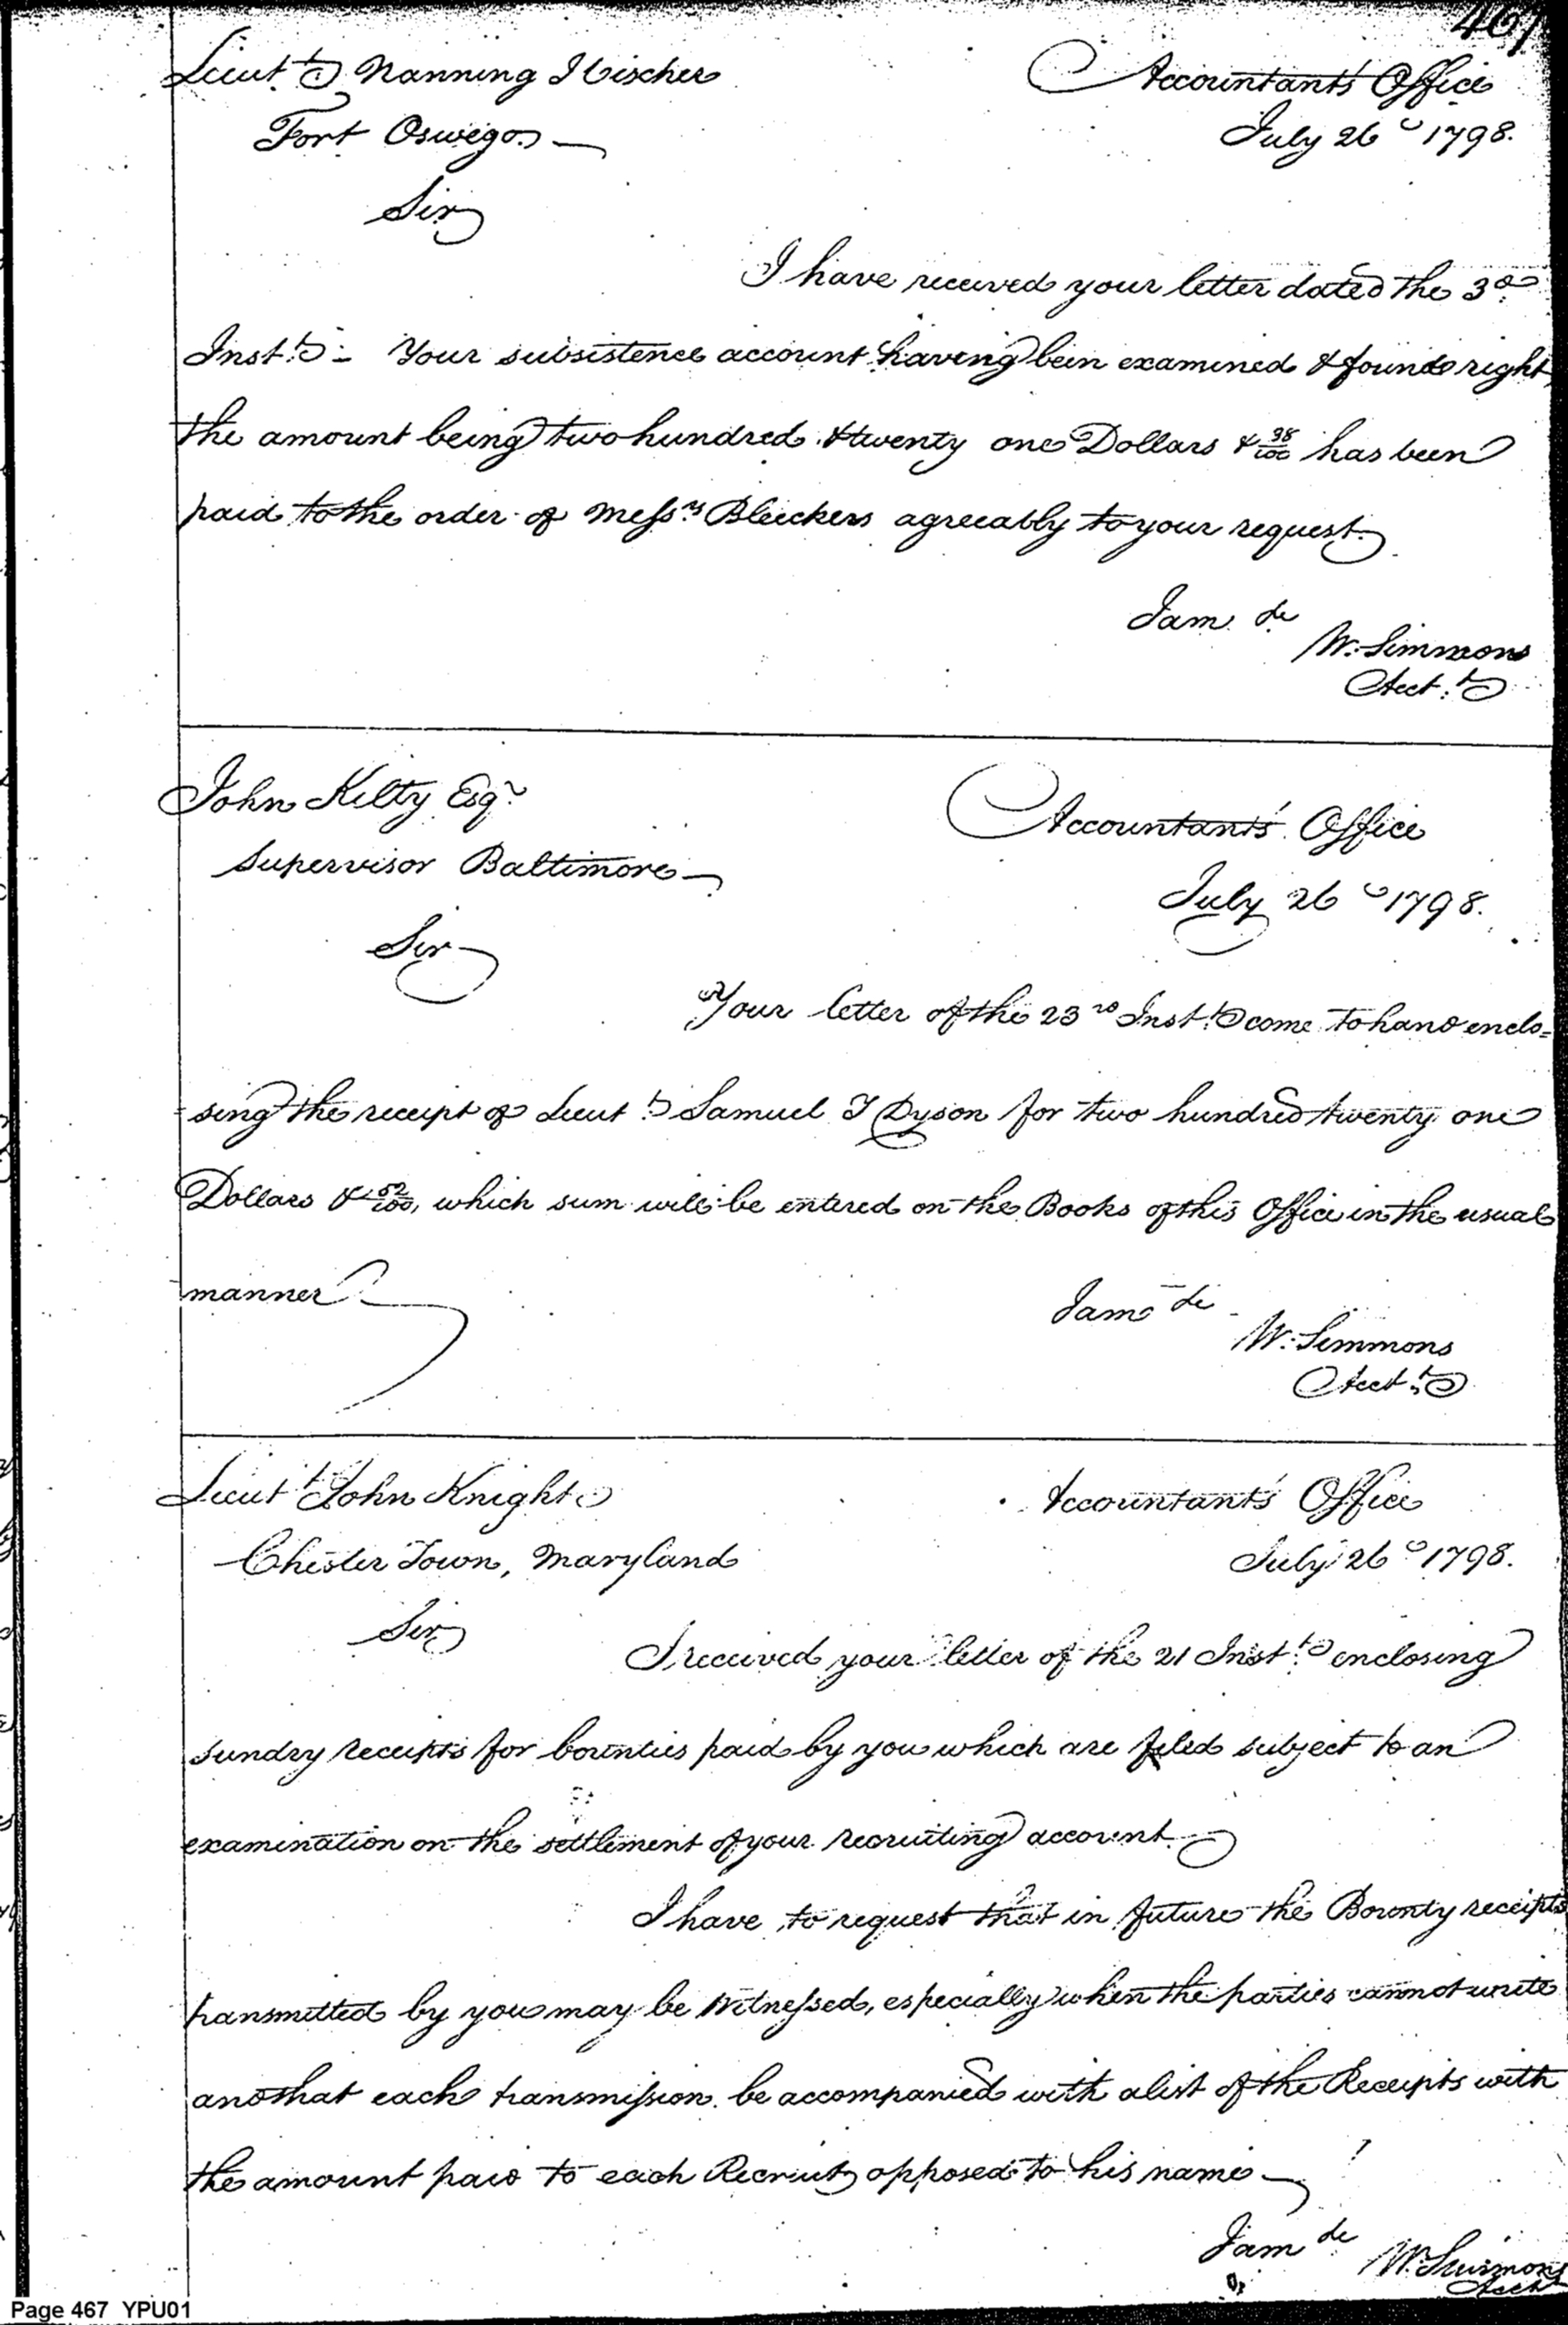 467
Lieut.t Nanning J Vischer
Accountant's Office
Fort Oswego
July 26 1798.
Sir
I have received your letter dated the 3d
Inst.t - Your subsistence account having been examined & found right
the amount being two hundred & twenty one Dollars & 38/100 has been
paid to the order of Mess.rs Bleeckers agreeably to your request.
I am &c
W. Simmons
Acct.t
John Kilty Esqr
Accountant's Office
Supervisor Baltimore
July 26 1798.
Sir
Your letter of the 23rd Inst.t come to hand enclo=
sing the receipt of Lieut.t Samuel T Dyson for two hundred twenty one
Dollars & /100, which sum will be entered on the Books of this Office in the usual
manner
I am &c
W. Simmons
Acct.t
Lieut.t John Knight
Accountant's Office
Chester Town, Maryland
July 26 1798.
Sir
I received your letter of the 21 Inst.t enclosing
sundry receipts for bounties paid by you which are filed subject to an
examination on the settlement of your recruiting account.
I have to request that in future the Bounty receipts
transmitted by you may be Witnessed, especially when the parties cannot write
and that each transmission be accompanied with a list of the Receipts with
the amount paid to each Recruit opposed to his name
I am &c
W. Simmons
Acct
Page 467 YPU01